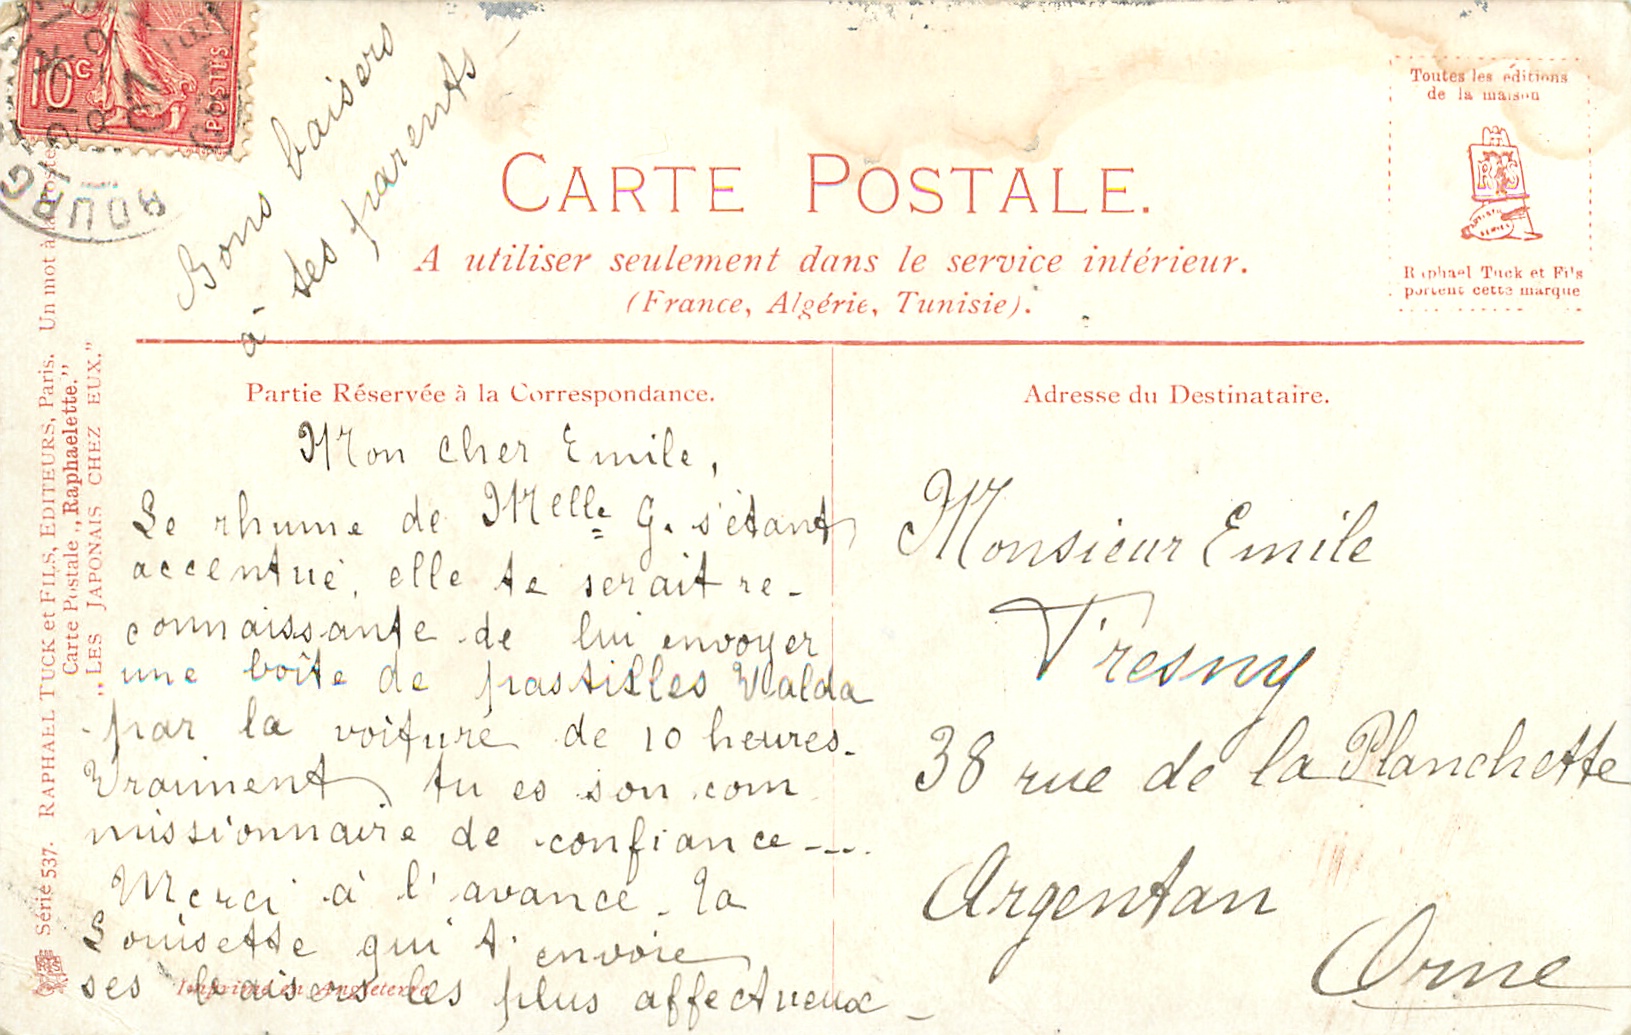 10c
POSTES
Bons baisers
à tes parents
CARTE POSTALE.
A utiliser seulement dans le service intérieur.
(France, Algérie, Tunisie).
Toutes les éditions
de la maison
Raphael Tuck et Fils
portent cette marque
Partie Réservée à la Correspondance.
Mon cher Emile,
Le rhume de Melle G. s'étant
accentué, elle te serait re-
connaissante de lui envoyer
une boîte de pastilles Valda
par la voiture de 10 heures.
Vraiment, tu es son com
missionnaire de confiance ----
Merci à l'avance. Ta
Louisette qui t'envoie
ses baisers les plus affectueux -
Imprimé en Angleterre
Adresse du Destinataire.
Monsieur Emile
Fresny
38 rue de la Planchette
Argentan
Orne
Série 537. RAPHAEL TUCK et FILS, EDITEURS, Paris. Un mot à la Poste
Carte Postale „Raphaelette."
„LES JAPONAIS CHEZ EUX."